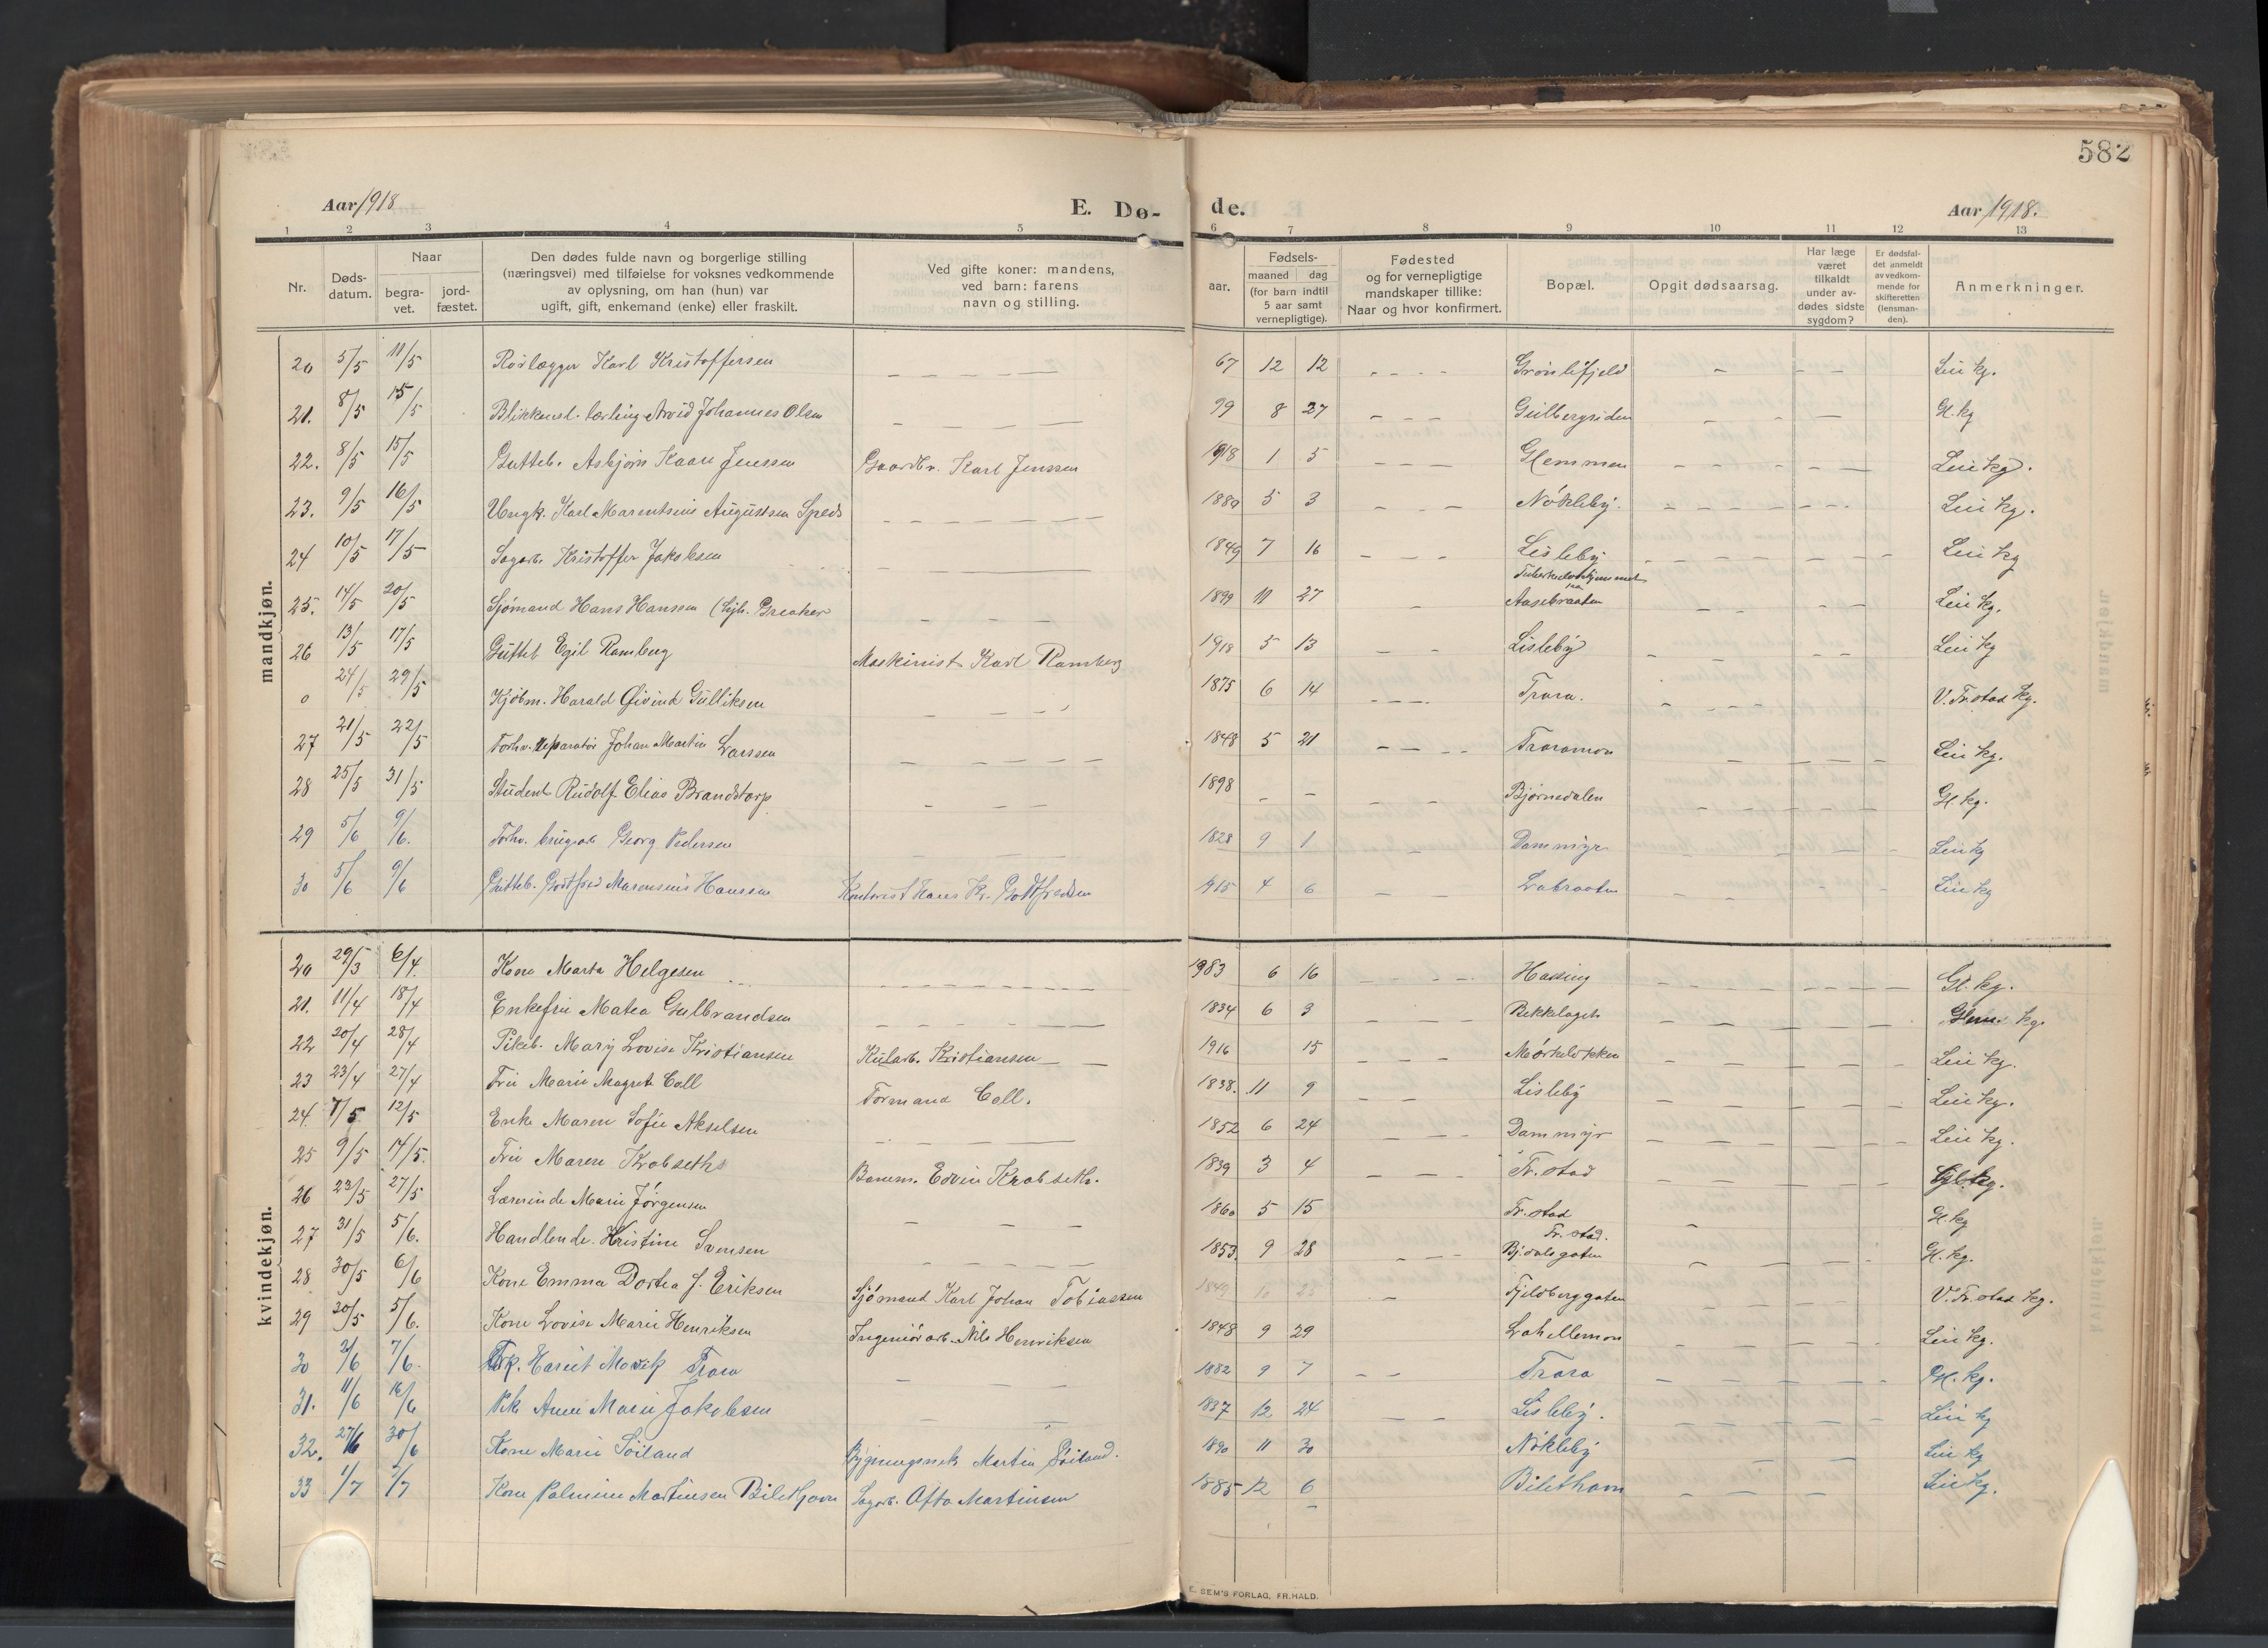 582
Aar 1918
E. Dø-
de.
Aar 1918.
1 2 3 4 5 6 7 8 9 10 11 12 13
Nr. Døds-datum. Naar begra-vet. jord-fæstet.
Den dødes fulde navn og borgerlige stilling
(næringsvei) med tilføielse for voksnes vedkommende
av oplysning, om han (hun) var
ugift, gift, enkemand (enke) eller fraskilt.
Ved gifte koner: mandens,
ved barn: farens
navn og stilling.
Fødsels-
aar. maaned dag
(for barn indtil
5 aar samt
vernepligtige).
Fødested
og for vernepligtige
mandskaper tillike:
Naar og hvor konfirmert.
Bopæl.
Opgit dødsaarsag.
Har læge
været
tilkaldt
under av-
dødes sidste
sygdom?
Er dødsfal-
det anmeldt
av vedkom-
mende for
skifteretten
(lensman-
den).
Anmerkninger.
mandkjøn.
20 5/5 11/5 Rørlægger Karl Kristoffersen 67 12 12 Grønlifjeld Lei kg.
21. 8/5 15/5 Blikkensl. lærling Arvid Johannes Olsen 99 8 27 Guilbergsiden Gl. kg
22. 8/5 15/5 Gutteb. Asbjørn Kaare Jenssen Gaardbr. Karl Jenssen 1918 1 5 Glemmen Lei kg.
23. 9/5 16/5 Ungk. Karl Marentsius Augustsen Speds 1889 5 3 Nøkleby. Lei kg.
24 10/5 17/5 Sagarb. Kristoffer Jakobsen 1849 7 16 Lisleby Lei kg
25. 14/5 20/5 Sjømand Hans Hanssen Greaker 1899 11 27 Tuberkulosehjemmet
paa
Aasebraaten Lei kg.
26 13/5 17/5 Gutteb Egil Ramberg Maskinist Karl Ramberg 1918 5 13 Lisleby Lei kg
0 24/5 29/5 Kjøbm. Harald Øivind Gulliksen 1875 6 14 Trara. V. Fr.stad kg.
27 21/5 22/5 Forhv. reparatør Johan Martin Larssen 1848 5 21 Traramon Lei kg.
28 25/5 31/5 Student Rudolf Elias Brandstorp 1898 Bjørnedalen Gl. kg.
29 5/6 9/6. Forhv. brugsarb Georg Pedersen 1828 9 1 Dammyr Lei kg
30 5/6 9/6 Gutteb. Gottfred Marensius Hanssen Kontorist Hans Kr. Gottfredsen 1915 4 6 Labraaten Lei kg
kvindekjøn.
20 29/3 6/4. Kone Marta Helgesen 1983 6 16 Hassing Gl. kg.
21. 11/4 18/4 Enkefru Matea Gulbrandsen 1834 6 3 Bekkelaget Glem. kg.
22 20/4 28/4 Pikeb. Mary Lovise Kristiansen Kularb. Kristiansen 1916 15 Mørkeløkken Lei kg.
23 23/4 27/4 Fru Marie Magrete Coll Formand Coll. 1838. 11 9 Lisleby Lei kg.
24. 7/5 12/5 Enke Maren Sofie Akselsen 1852 6 24 Dammyr Lei kg.
25 9/5 14/5. Fru Maren Krabseths Banem. Edvin Krabseth. 1839 3 4 Fr.stad Gl. kg.
26 23/5 27/5 Lærerinde Marie Jørgensen 1860 5 15 Fr.stad Gl. kg
27 31/5 5/6. Handlende. Kristine Svensen 1853. 9 28 Fr. stad.
Bjdalsgaten Gl. kg.
28 30/5 6/6 Kone Emma Dortea J. Eriksen Sjømand Karl Johan Tobiassen 1849 10 23 Fjeldberggaten V. Fr.stad kg.
29 30/5 5/6. Kone Lovise Marie Henriksen Ingeniørarb. Nils Henriksen 1848 9 29 Lahellemon Lei kg.
30 2/6 7/6. Harriet Trara 1882 9 7 Trara Gl. kg.
31. 11/6 16/6 Anne Marie Jakobsen 1837 12 24 Lisleby. Lei kg
32. 27/6 30/6 Kone Marie Søiland Martin Søiland. 1890 11 30 Nøkleby Lei kg
33 1/7 7/7 Kone Palmine Martinsen Bilethavn Sagarb. Martinsen 1885 12 6 Bilethavn Lei kg.
E. SEM'S FORLAG, FR.HALD.